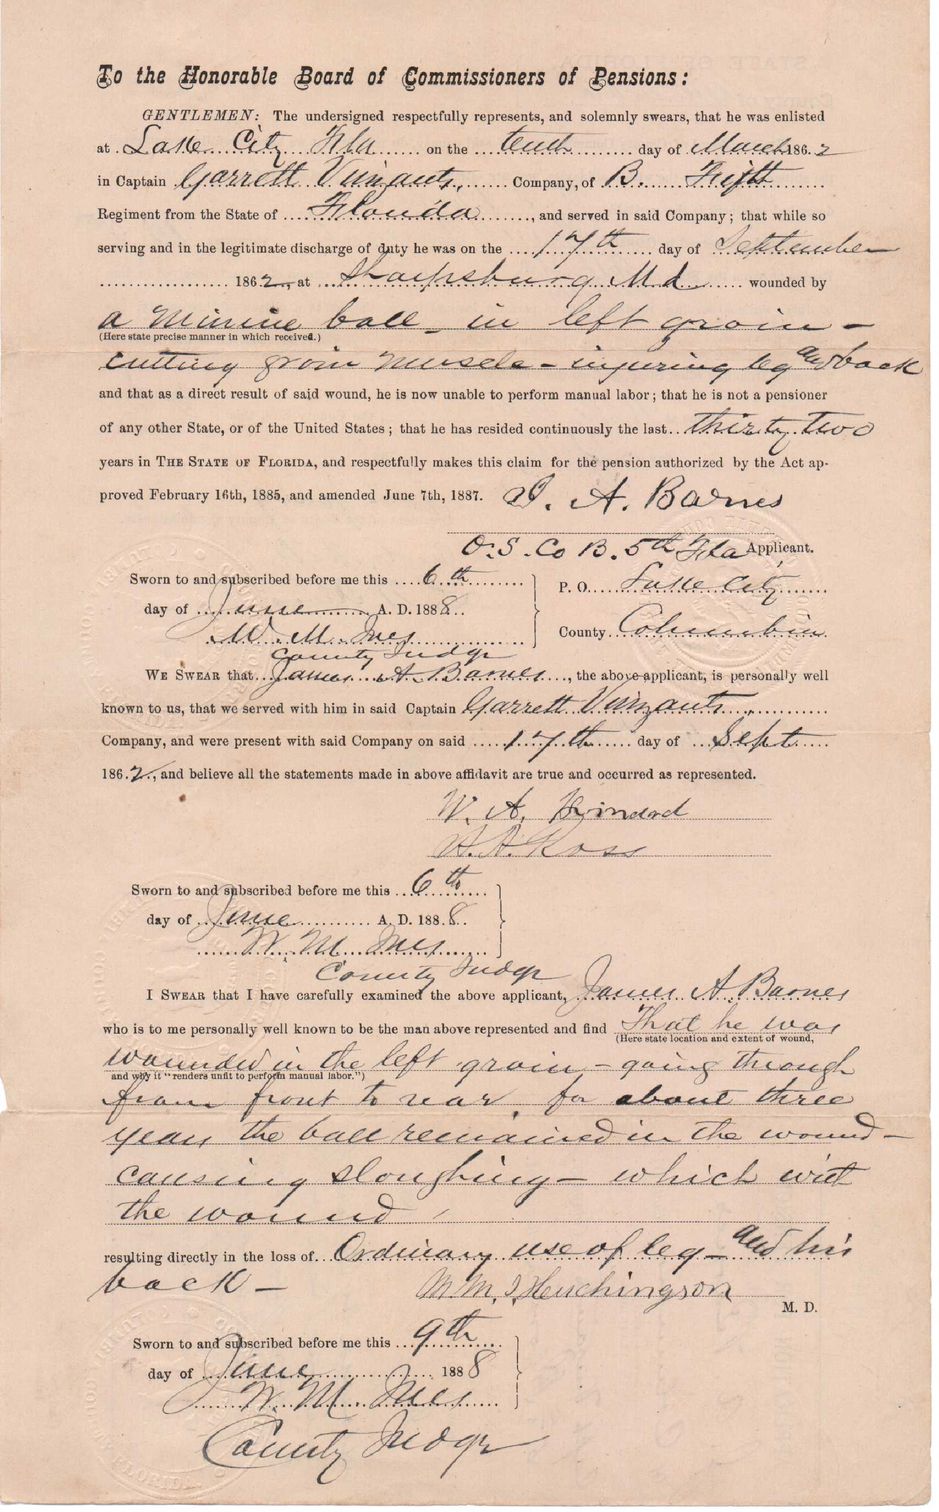 To the Honorable Board of Commissioners of Pensions:
GENTLEMEN: The undersigned respectfully represents, and solemnly swears, that he was enlisted
at Lake City Fla on the tenth day of March 1862
in Captain Garrett Vinzants, Company, of B. Fifth
Regiment from the State of Florida, and served in said Company; that while so
serving and in the legitimate discharge of duty he was on the 17th day of September
1862, at Sharpsburg Md wounded by
a minnie ball - in left groin -
(Here state precise manner in which received.)
cutting groin muscle - injuring leg and back
and that as a direct result of said wound, he is now unable to perform manual labor; that he is not a pensioner
of any other State, or of the United States; that he has resided continuously the last thirty two
years in THE STATE OF FLORIDA, and respectfully makes this claim for the pension authorized by the Act ap-
proved February 16th, 1885, and amended June 7th, 1887. J. A. Barnes
O.S. Co B. 5th Fla Applicant.
Sworn to and subscribed before me this 6th
P. O. Lake City
day of June A. D. 1888.
County Columbia
W. M. Ives
County Judge
WE SWEAR that James A. Barnes, the above applicant, is personally well
known to us, that we served with him in said Captain Garrett Vinzants
Company, and were present with said Company on said 17th day of Sept
1862, and believe all the statements made in above affidavit are true and occurred as represented.
W. A.
Ross
Sworn to and subscribed before me this 6th
day of June A. D. 1888.
W. M. Ives
County Judge
I SWEAR that I have carefully examined the above applicant, James A. Barnes
who is to me personally well known to be the man above represented and find That he was
(Here state location and extent of wound,
wounded in the left groin - going through
and why it "renders unfit to perform manual labor.")
from front to rear. for about three
years the ball remained in the wound -
causing sloughing - which with
the wound
resulting directly in the loss of Ordinary use of leg - and his
back - Hutchingson
M. D.
Sworn to and subscribed before me this 9th
day of June 1888
W. M. Ives
County Judge